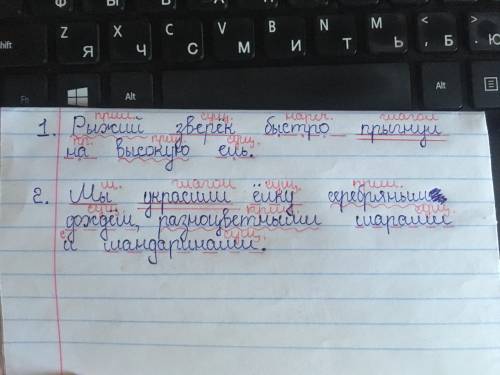 Z X C V B N M < >
Shift Я Ч С М И Т Ь Б Ю
Alt Alt Ctrl
прил. сущ. нареч. глагол
1. Рыжий зверёк быстро прыгнул
пр. прил. сущ.
на высокую ель.
м. глагол сущ. прил.
2. Мы украсили ёлку серебряным
сущ. прил. сущ.
дождём, разноцветными шарами
с. сущ.
и мандаринами.